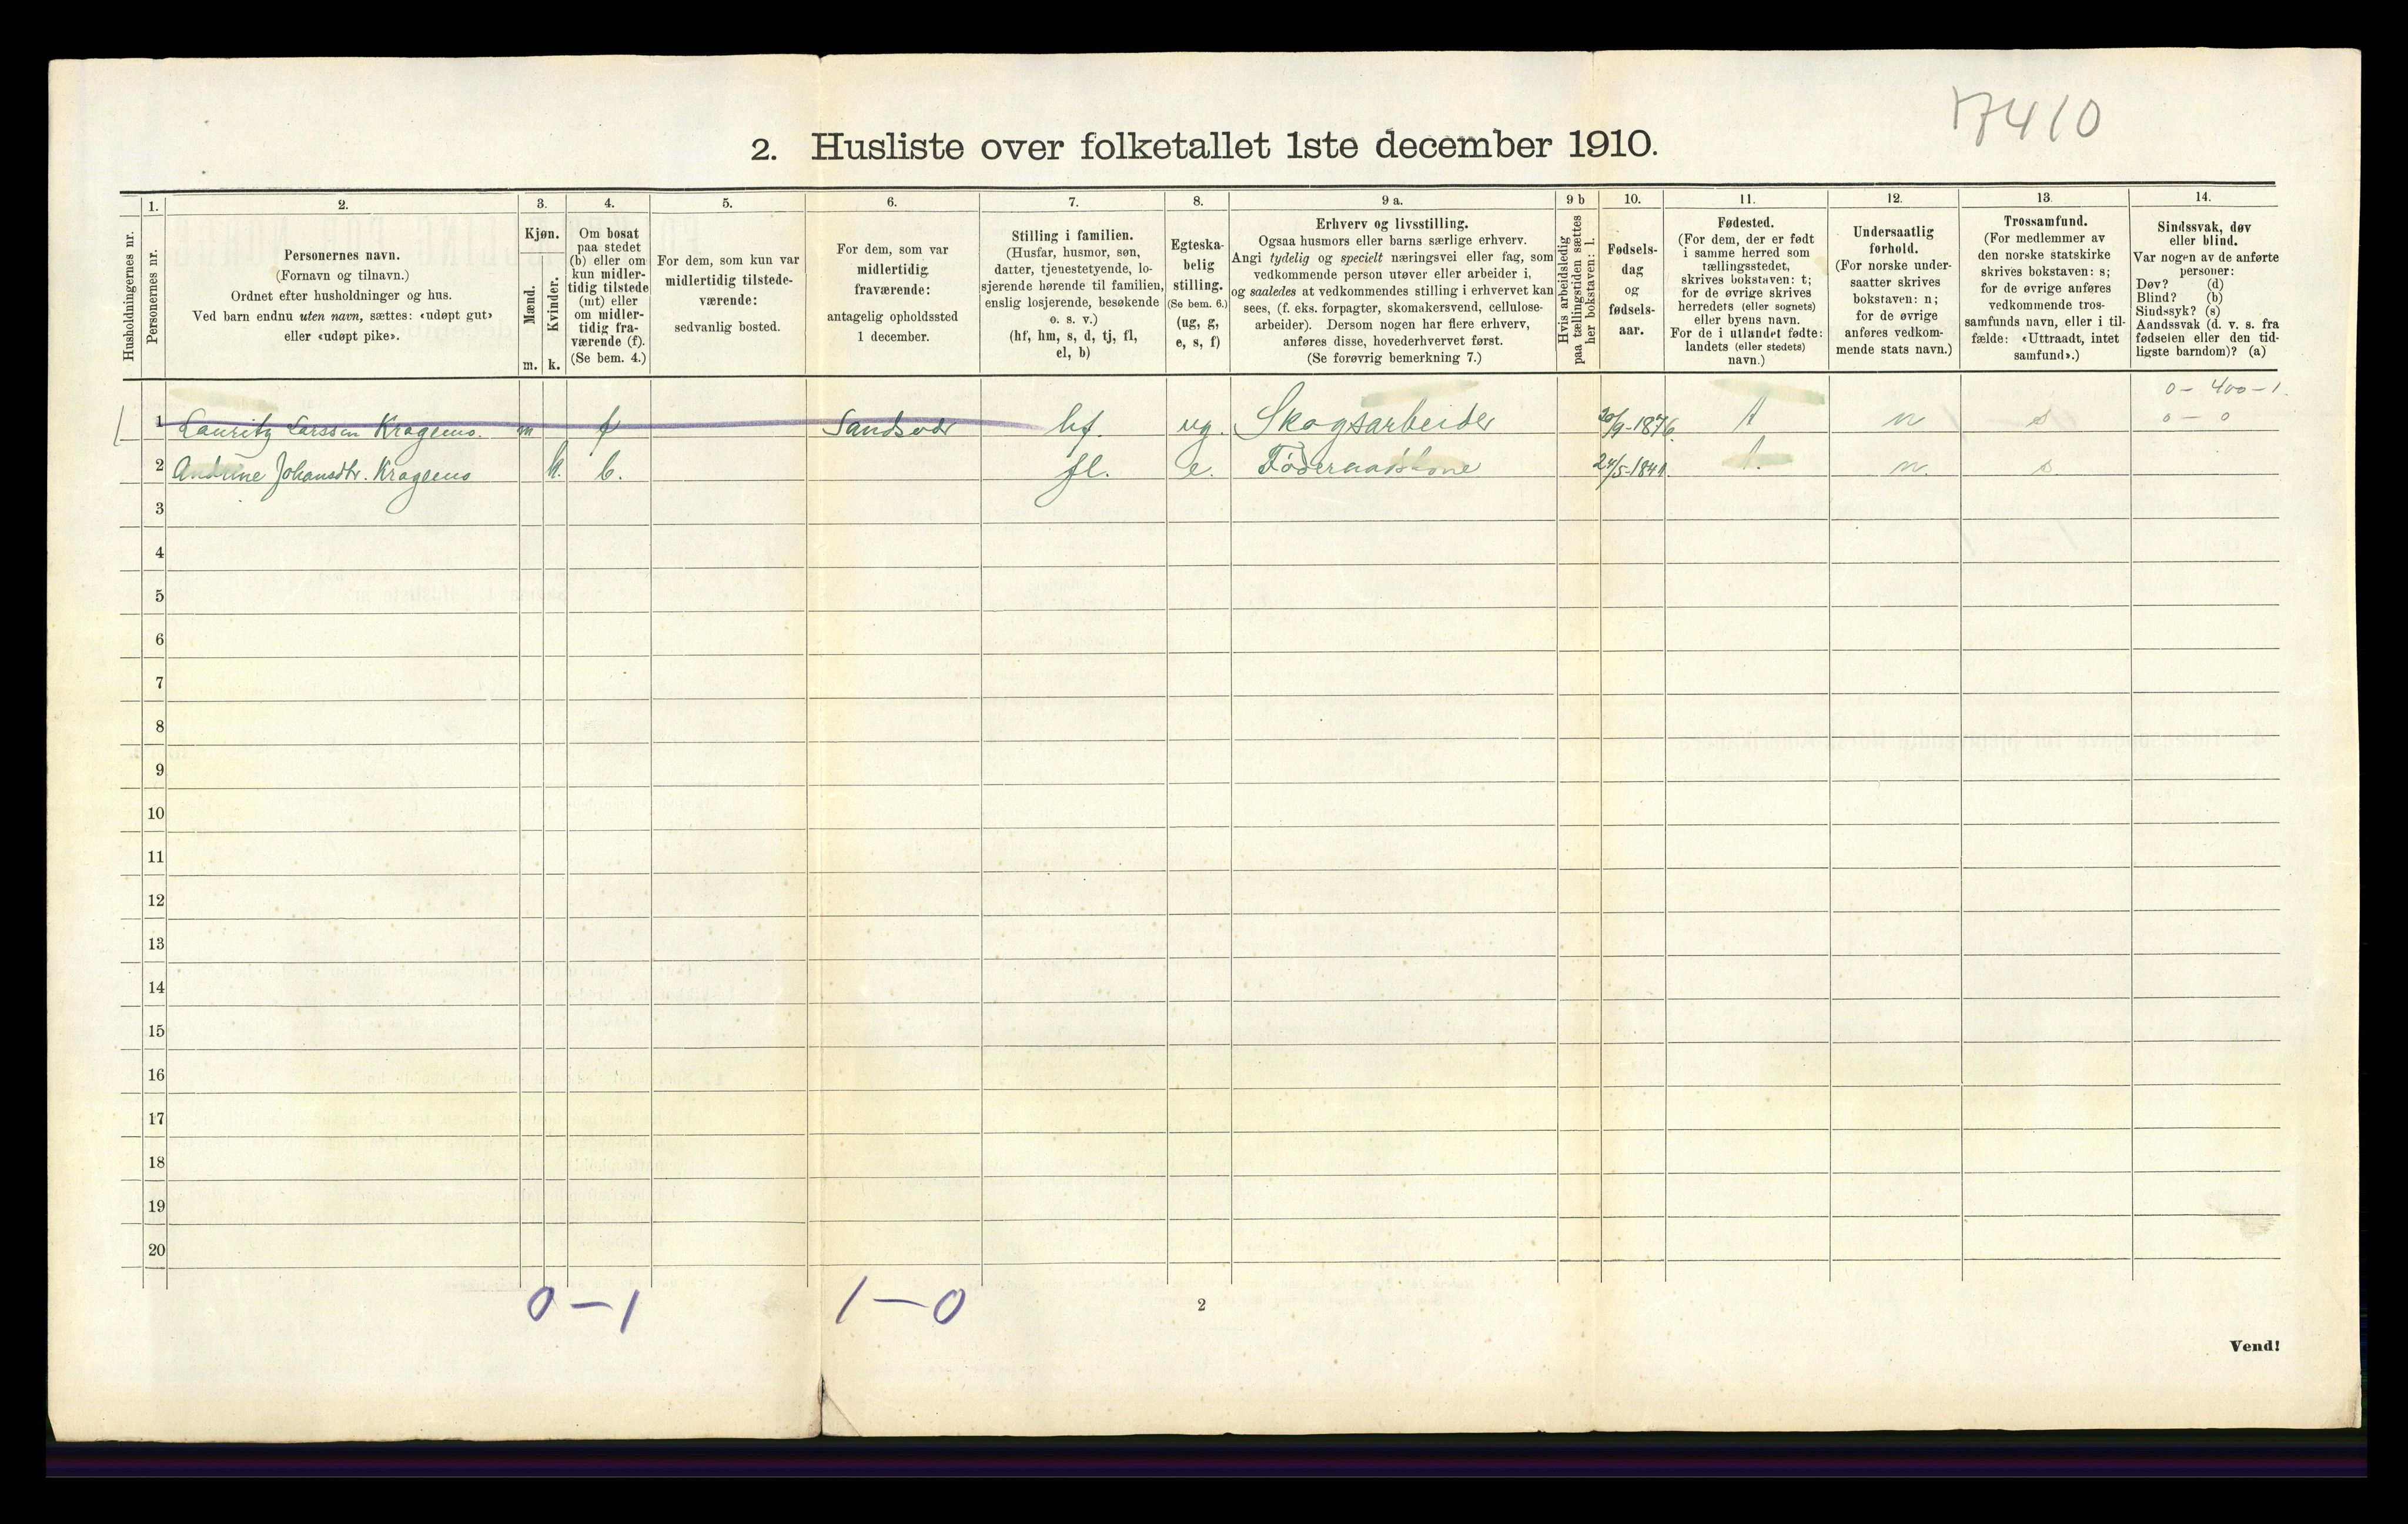 17410
2. Husliste over folketallet 1ste december 1910.
Husholdningernes nr.
1.
Personernes nr.
2.
Personernes navn.
(Fornavn og tilnavn.)
Ordnet efter husholdninger og hus.
Ved barn endnu uten navn, sættes: «udøpt gut»
eller «udøpt pike».
3.
Kjøn.
Mænd.
Kvinder.
m. k.
4.
Om bosat
paa stedet
(b) eller om
kun midler-
tidig tilstede
(mt) eller
om midler-
tidig fra-
værende (f).
(Se bem. 4.)
5.
For dem, som kun var
midlertidig tilstede-
værende:
sedvanlig bosted.
6.
For dem, som var
midlertidig
fraværende:
antagelig opholdssted
1 december.
7.
Stilling i familien.
(Husfar, husmor, søn,
datter, tjenestetyende, lo-
sjerende hørende til familien,
enslig losjerende, besøkende
o. s. v.)
(hf, hm, s, d, tj, fl,
el, b)
8.
Egteska-
belig
stilling.
(Se bem. 6.)
(ug, g,
e, s, f)
9 a.
Erhverv og livsstilling.
Ogsaa husmors eller barns særlige erhverv.
Angi tydelig og specielt næringsvei eller fag, som
vedkommende person utøver eller arbeider i,
og saaledes at vedkommendes stilling i erhvervet kan
sees, (f. eks. forpagter, skomakersvend, cellulose-
arbeider). Dersom nogen har flere erhverv,
anføres disse, hovederhvervet først.
(Se forøvrig bemerkning 7.)
9 b
Hvis arbeidsledig
paa tællingstiden sættes
her bokstaven: l.
10.
Fødsels-
dag
og
fødsels-
aar.
11.
Fødested.
(For dem, der er født
i samme herred som
tællingsstedet,
skrives bokstaven: t;
for de øvrige skrives
herredets (eller sognets)
eller byens navn.
For de i utlandet fødte:
landets (eller stedets)
navn.)
12.
Undersaatlig
forhold.
(For norske under-
saatter skrives
bokstaven: n;
for de øvrige
anføres vedkom-
mende stats navn.)
13.
Trossamfund.
(For medlemmer av
den norske statskirke
skrives bokstaven: s;
for de øvrige anføres
vedkommende tros-
samfunds navn, eller i til-
fælde: «Uttraadt, intet
samfund».)
14.
Sindssvak, døv
eller blind.
Var nogen av de anførte
personer:
Døv? (d)
Blind? (b)
Sindssyk? (s)
Aandssvak (d. v. s. fra
fødselen eller den tid-
ligste barndom)? (a)
0 - 400 - 1.
1 Lauritz Larssen Kragemo. m f Sandsvær hf. ug. Skogsarbeider 20/9-1876. t n s 0 - 0
2 Andrine Johansdtr. Kragemo k. b. fl. e. Føderaadskone 24/5-1841. t. n. s.
3
4
5
6
7
8
9
10
11
12
13
14
15
16
17
18
19
20
0 - 1 1 - 0
2
Vend!